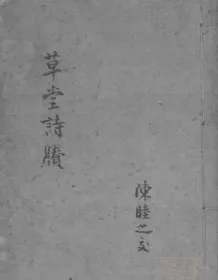 草堂詩牘
陳睦之文